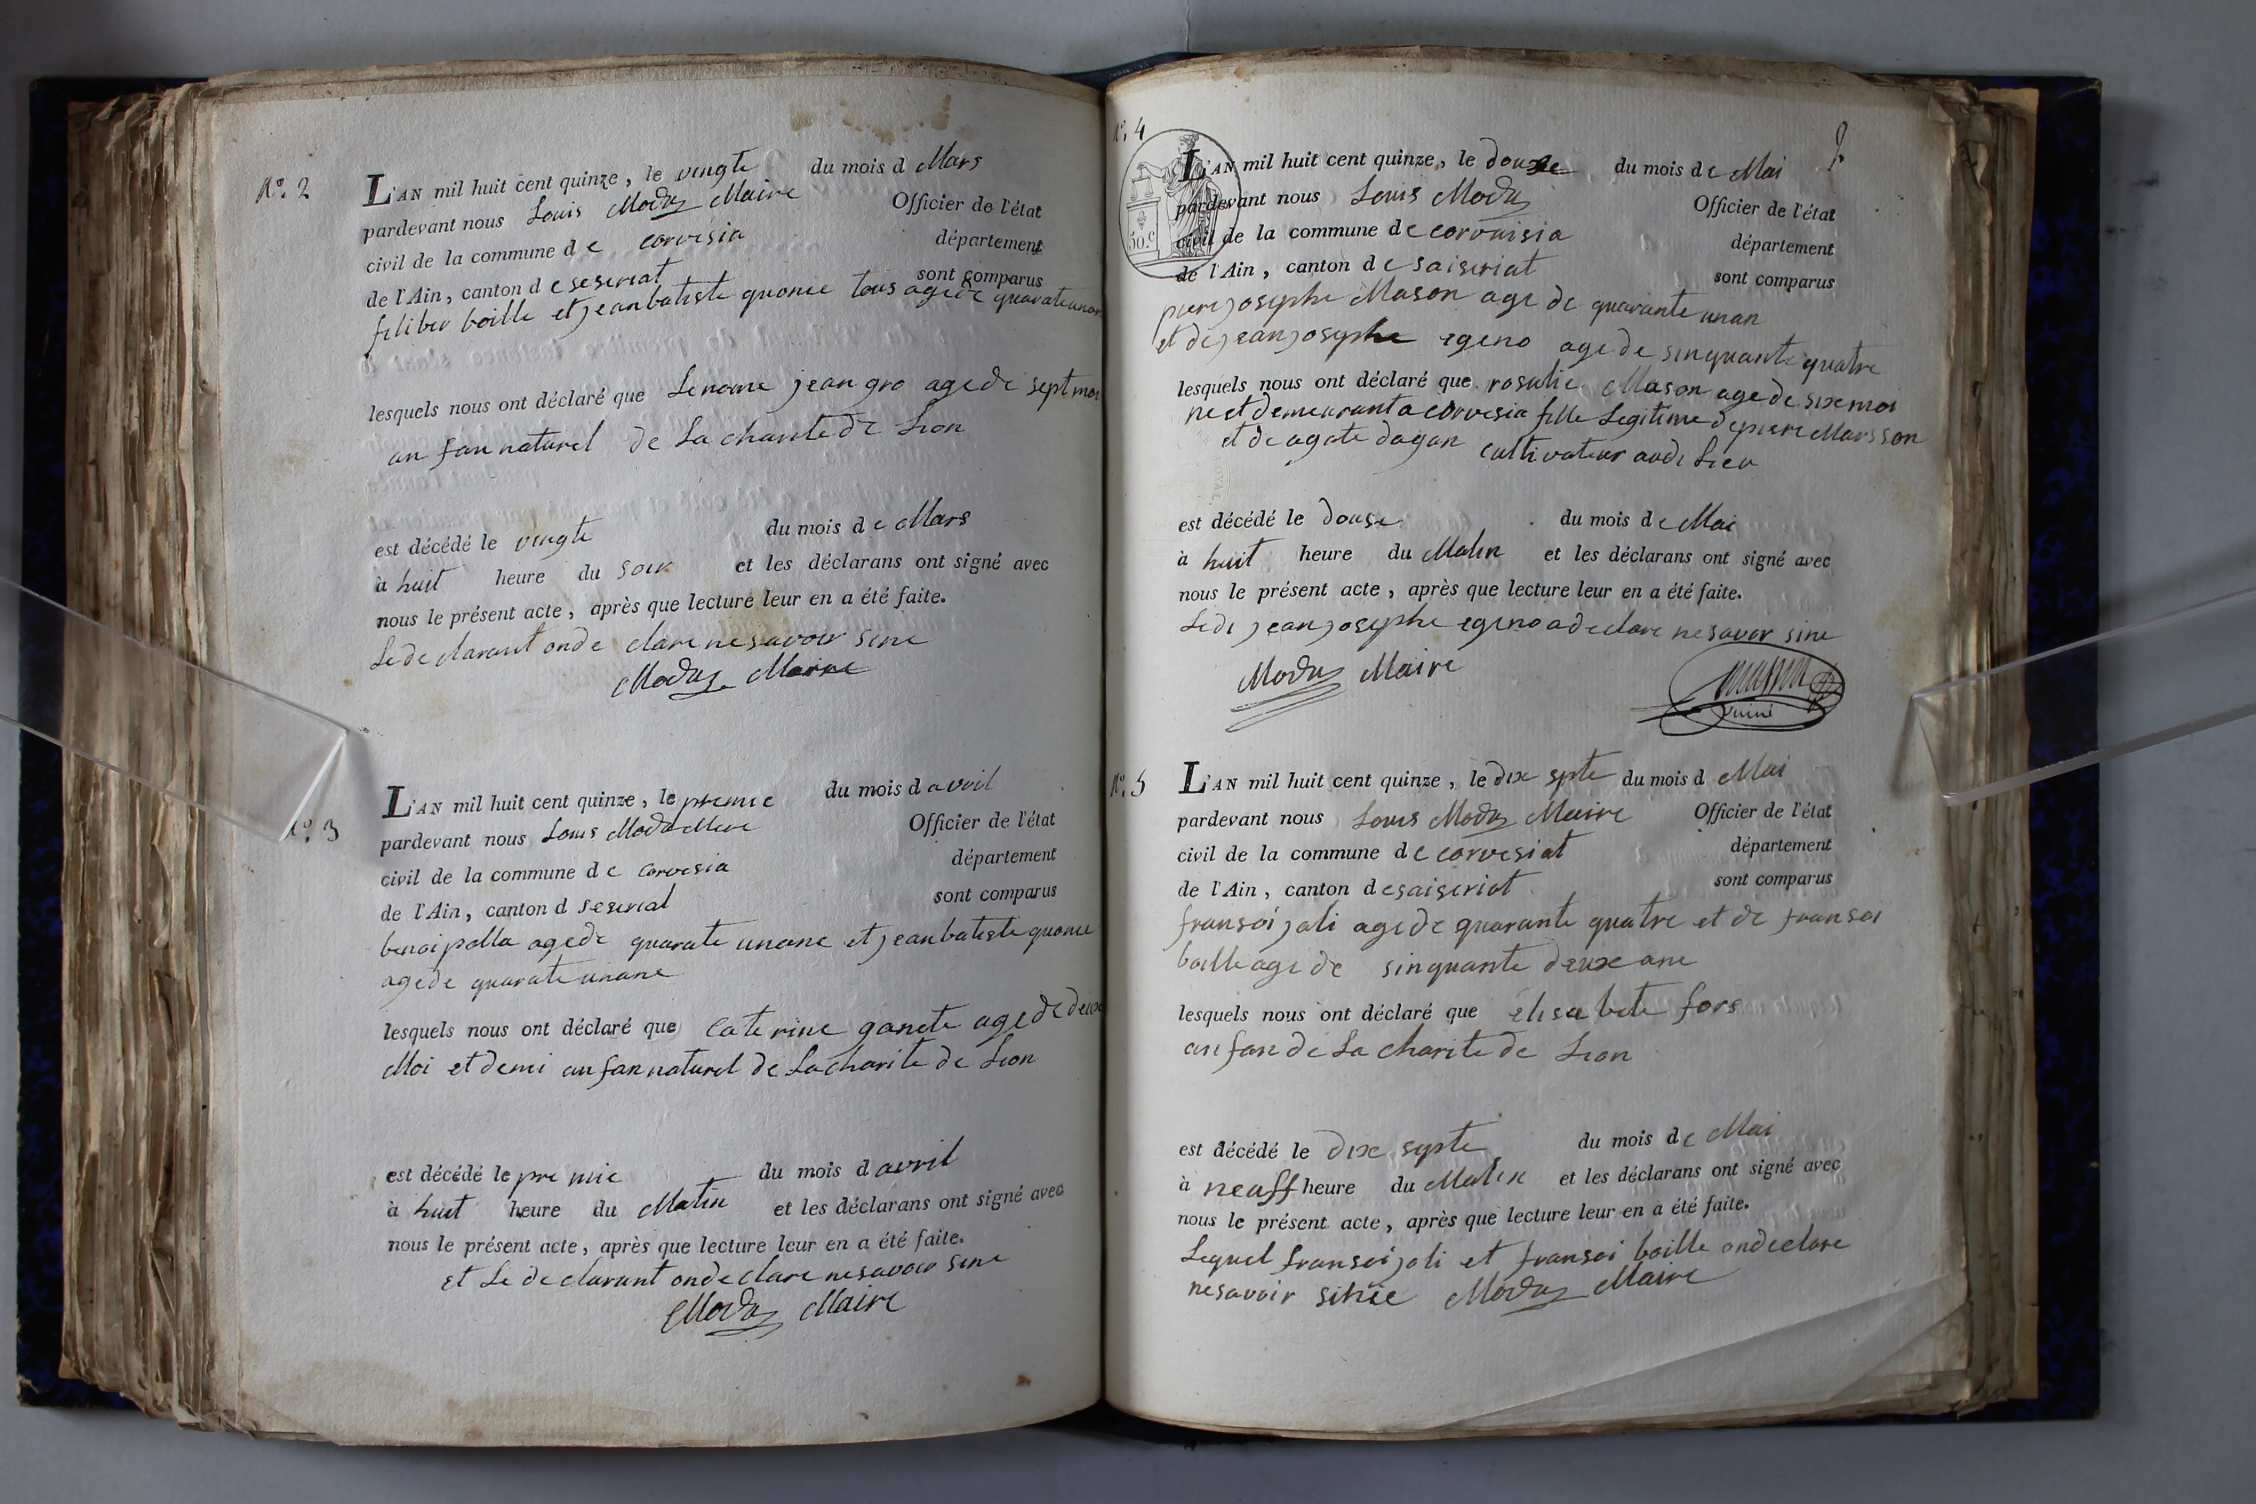 N.° 2
L'AN mil huit cent quinze, le vingte du mois d Mars
pardevant nous Louis Moda Maire Officier de l'état
civil de la commune de corvesia département
de l'Ain, canton de seseriat sont comparus
filiber boille et jeanbatiste quonie tous agede quarateunan
lesquels nous ont déclaré que Lenome jean gro agede sept moi
an fan naturel de La charitede Lion
est décédé le vingte du mois de Mars
à huit heure du soir et les déclarans ont signé avec
nous le présent acte, après que lecture leur en a été faite.
Lede clarant onde clare nesavoir sine
Moda Maire
N.° 3
L'AN mil huit cent quinze, le premie du mois d avril
pardevant nous Louis Moda Mere Officier de l'état
civil de la commune de corvesia département
de l'Ain, canton d seserial sont comparus
benoi palla agede quarate unane et jeanbatiste quonie
agede quarate unane
lesquels nous ont déclaré que Caterine ganete agede deux
Moi et demi anfannaturel de Lacharite de Lion
est décédé le premie du mois d avril
à huit heure du Matin et les déclarans ont signé avec
nous le présent acte, après que lecture leur en a été faite.
et Le declarant ondeclare nesavoir sene
Moda Maire
N.° 4
50.c
L'AN mil huit cent quinze, le douse du mois de Mai
pardevant nous Louis Moda Officier de l'état
civil de la commune de corvaisia département
de l'Ain, canton de saiseriat sont comparus
piere josephe Mason age de quarante unan
et de jean josephe egeno age de sinquante quatre
lesquels nous ont déclaré que rosalie Mason agede sixmoi
ne et demeurant a corvesia fille Legitime depiere Marsson
et de agate dagan cultivateur audi Lieu
est décédé le douse du mois de Mai
à huit heure du Matin et les déclarans ont signé avec
nous le présent acte, après que lecture leur en a été faite.
Ledi jean josephe egeno a declare nesavor sine
Moda Maire
N.° 5
L'AN mil huit cent quinze, le dix septe du mois d Mai
pardevant nous Louis Moda Maire Officier de l'état
civil de la commune de corvesiat département
de l'Ain, canton de saiseriat sont comparus
fransoi joli agede quarante quatre et de fransoi
boille age de sinquante deux ane
lesquels nous ont déclaré que élisabete fors
anfan de La charite de Lion
est décédé le dix septe du mois de Mai
à neuff heure du Matin et les déclarans ont signé avec
nous le présent acte, après que lecture leur en a été faite.
Lequel fransoi joli et fransoi boille ondeclare
nesavoir sinée Moda Maire